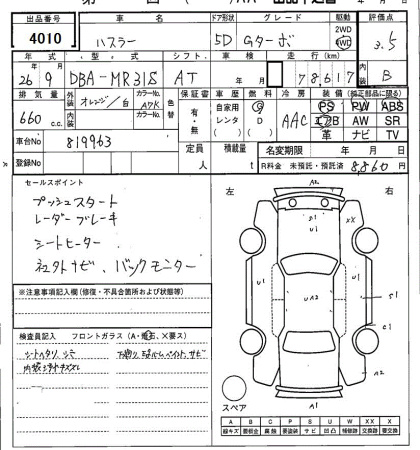 出品番号 車名 ドア形状 グレード 駆動 評価点
4010 ハスラー 5D Gターボ 2WD 4WD 3.5
年式 型式 シフト 車検 走行(km) 内装
26年 9月 DBA-MR31S AT 年 月 78,617 B
排気量 外装 カラーNo. 色替 保証書 車歴 燃料 冷房 装備(純正部品に限る)
660 c.c. オレンジ/白 A7K 有・無 自家用 レンタ G D AAC PS PW ABS
エアB AW SR
革 ナビ TV
内装 カラーNo.
車台No 819963 定員 人 積載量 t 名変期限 年 月 日
登録No R料金 未預託・預託済 8,860 円
セールスポイント
プッシュスタート
レーダーブレーキ
シートヒーター
ネクストナビ、バックモニター
※注意事項記入欄(修復・不具合箇所および状態等)
検査員記入 フロントガラス(A・飛石、×要ス)
左 右
A2
S1
XX
U1
U1
U1
UA2
S1
C1
A2
A1
スペア
A B C P S U W X XX
線キズ 要板金 腐蝕 要塗装 サビ 凹凸 補修跡 要交換 交換済